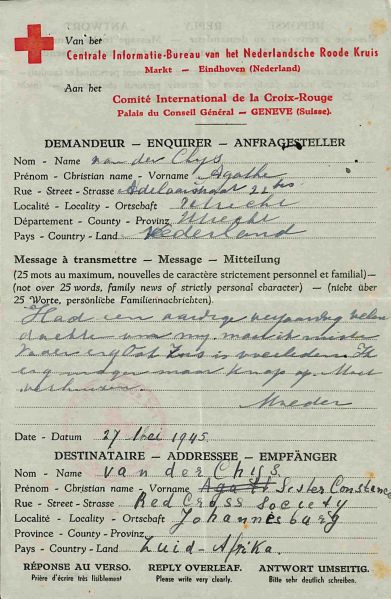 Van het
Centrale Informatie-Bureau van het Nederlandsche Roode Kruis
Markt — Eindhoven (Nederland)
Aan het
Comité International de la Croix-Rouge
Palais du Conseil Général — GENEVE (Suisse).
DEMANDEUR — ENQUIRER — ANFRAGESTELLER
Nom - Name van der Chijs
Prénom - Christian name - Vorname Agathe
Rue - Street - Strasse Adelaarstraat 22 bis
Localité - Locality - Ortschaft Utrecht
Département - County - Provinz Utrecht
Pays - Country - Land Nederland
Message à transmettre — Message — Mitteilung
(25 mots au maximum, nouvelles de caractère strictement personnel et familial) —
(not over 25 words, family news of strictly personal character) — (nicht über
25 Worte, persönliche Familiennachrichten)
Had een aardige verjaardag velen
dachten aan my.
is overleden. Ik
knap op. Moet
verhuizen.
Moeder
Date - Datum 27 Mei 1945.
DESTINATAIRE — ADDRESSEE — EMPFÄNGER
Nom - Name van der Chijs
Prénom - Christian name - Vorname Sister Constance
Rue - Street - Strasse Red Cross Society
Localité - Locality - Ortschaft Johannesburg
Province - County - Provinz
Pays - Country - Land Zuid-Afrika.
RÉPONSE AU VERSO. REPLY OVERLEAF. ANTWORT UMSEITIG.
Prière d'écrire très lisiblement Please write very clearly. Bitte sehr deutlich schreiben.